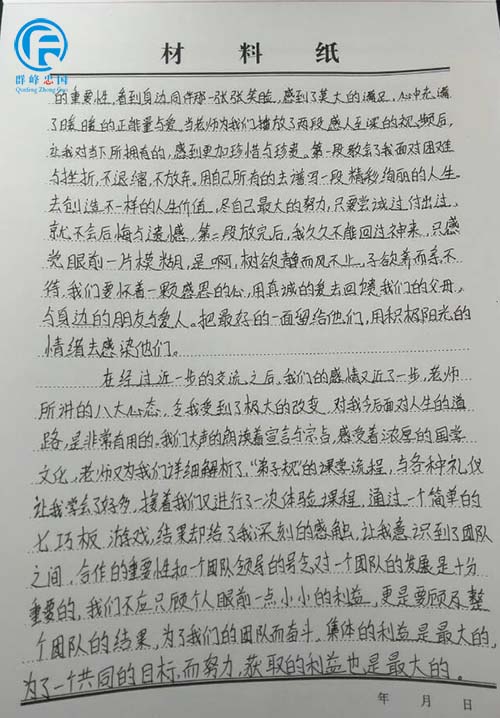 群峰忠国
Qunfeng Zhong Guo
材料纸
的重要性,看到身边同伴那一张张笑脸,感到了莫大的满足,心中充满
了暖暖的正能量与爱,当老师为我们播放了两段感人至深的视频后,
让我对当下所拥有的,感到更加珍惜与珍贵。第一段教会了我面对困难
与挫折,不退缩,不放弃。用自己所有的去谱写一段精彩绚丽的人生。
去创造不一样的人生价值,尽自己最大的努力,只要尝试过付出过,
就不会后悔与遗憾,第二段放完后,我久久不能回过神来,只感
觉眼前一片模糊,是啊,树欲静而风不止,子欲养而亲不
待,我们要怀着一颗感恩的心,用真诚的爱去回馈我们的父母,
与身边的朋友与爱人。把最好的一面留给他们,用积极阳光的
情绪去感染他们。
在经过近一步的交流之后,我们的感情又近了一步,老师
所讲的八大心态,令我受到了极大的改变,对我今后面对人生的道
路,是非常有用的。我们大声的朗读着宣言与宗旨,感受着浓厚的国学
文化,老师又为我们详细解析了,“弟子规”的课堂流程,与各种礼仪
让我学会了好多,接着我们又进行了一次体验课程,通过一个简单的
七巧板,游戏,结果却给了我深刻的感触,让我意识到了团队
之间,合作的重要性和一个团队领导的号令对一个团队的发展是十分
重要的,我们不应只顾个人眼前一点小小的利益,更是要顾及整
个团队的结果,为了我们的团队而奋斗,集体的利益是最大的,
为了一个共同的目标,而努力,获取的利益也是最大的。
年 月 日